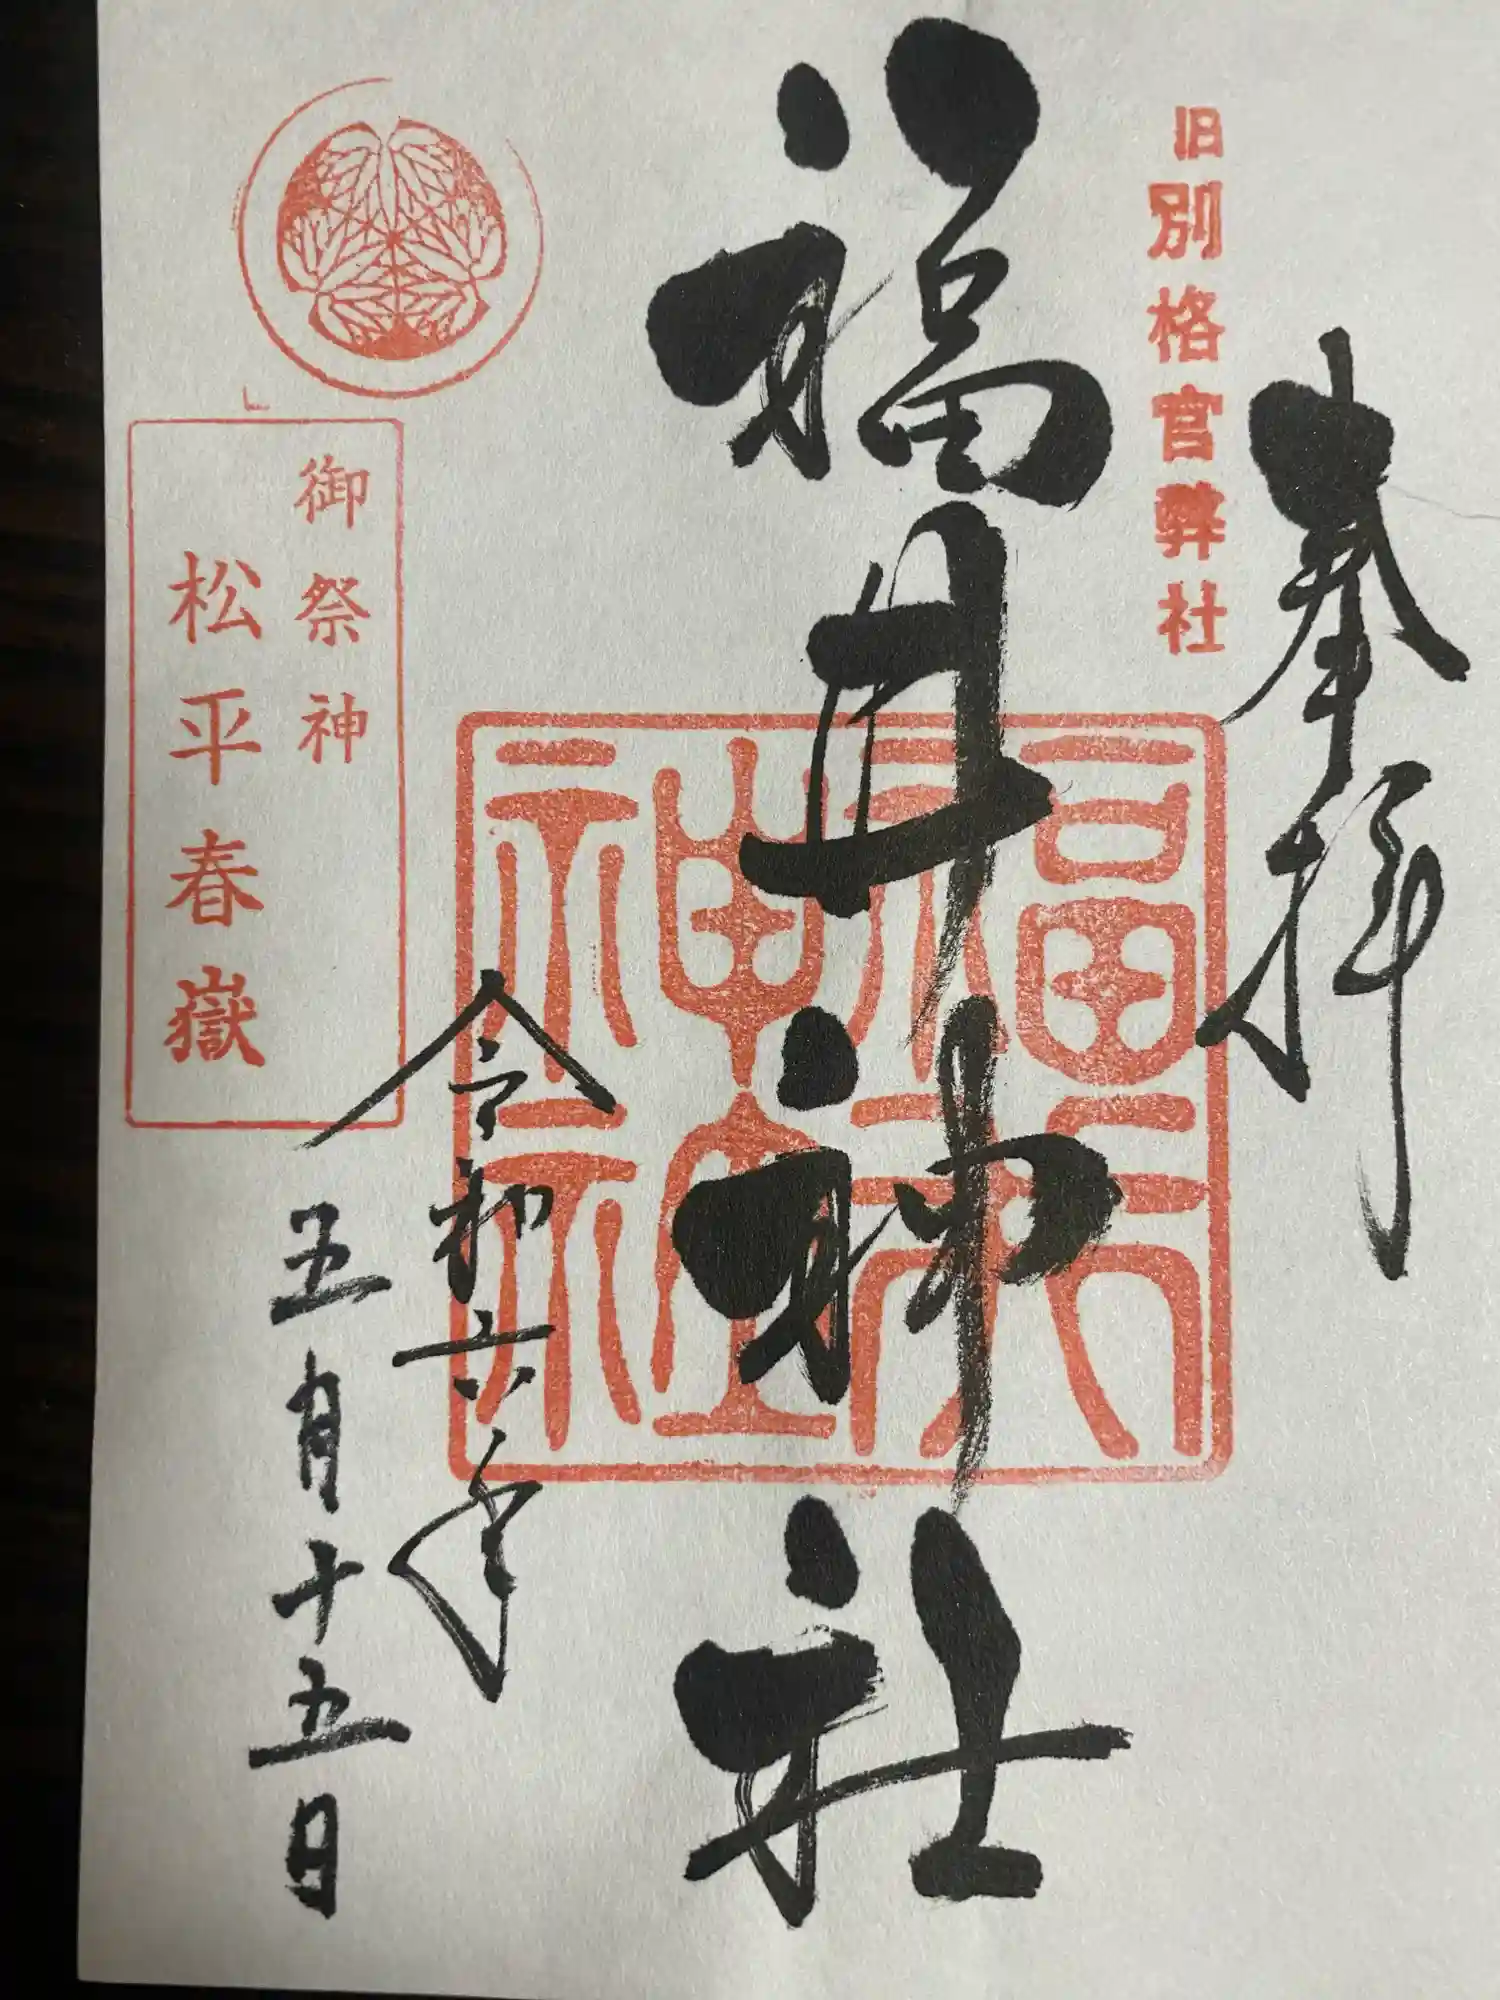 奉拝
旧別格官弊社
福井神社
福井神社
令和六年
五月十五日
御祭神
松平春嶽